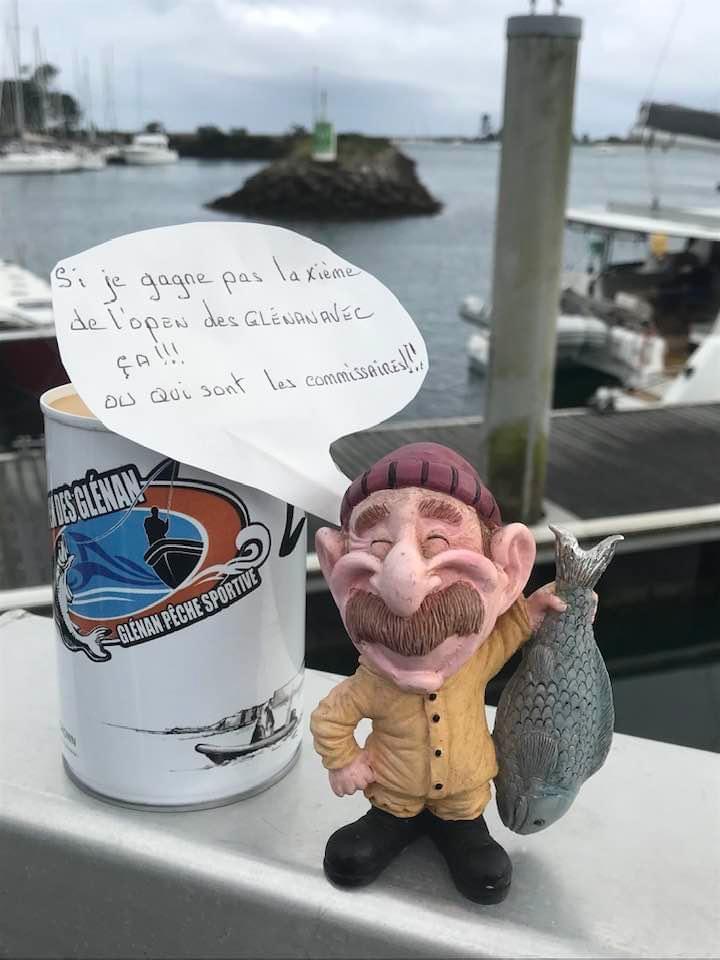 Si je gagne pas la xième
de l'open des GLÉNAN AVEC
ÇA!!!
ou qui sont les commissaires!!!
DES GLÉNAN
GLÉNAN PÊCHE SPORTIVE